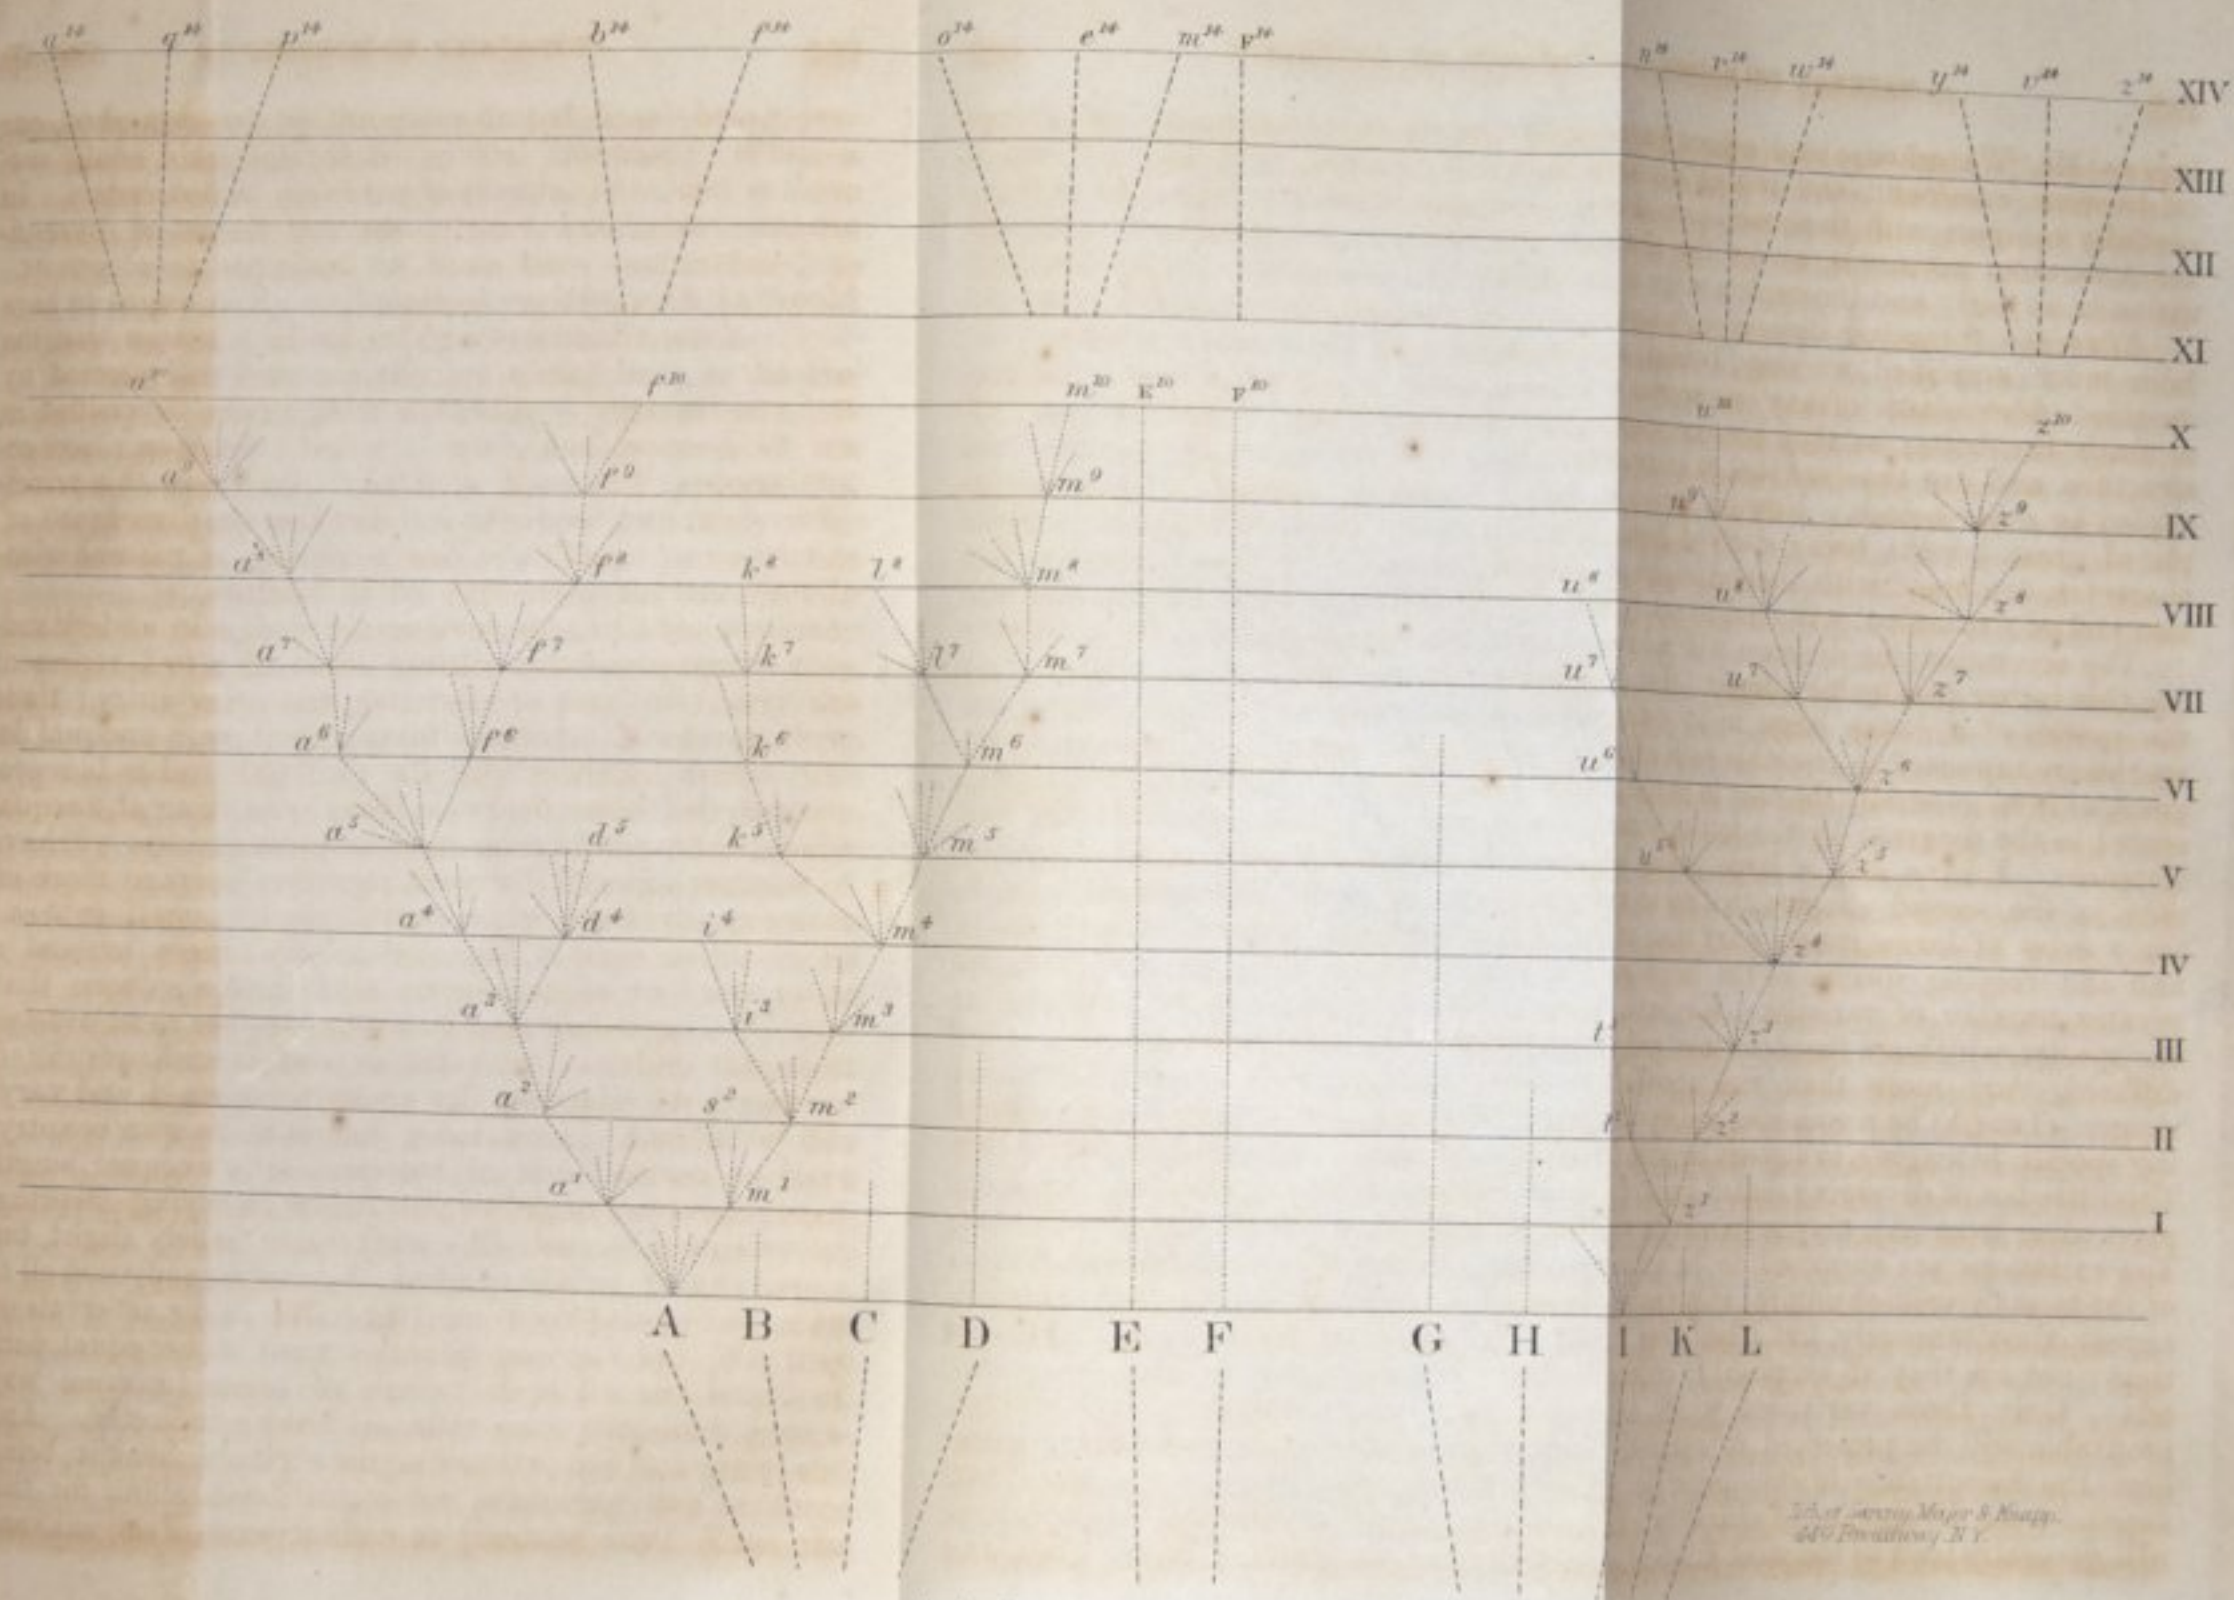 a¹⁴ q¹⁴ p¹⁴ b¹⁴ f¹⁴ o¹⁴ e¹⁴ m¹⁴ F¹⁴ n¹⁴ r¹⁴ w¹⁴ y¹⁴ v¹⁴ z¹⁴ XIV
XIII
XII
XI
f¹⁰ m¹⁰ E¹⁰ F¹⁰ u¹⁰ z¹⁰ X
a⁹ f⁹ m⁹ u⁹ z⁹ IX
a⁸ f⁸ k⁸ l⁸ m⁸ u⁸ u⁸ z⁸ VIII
a⁷ f⁷ k⁷ l⁷ m⁷ u⁷ u⁷ z⁷ VII
a⁶ f⁶ k⁶ m⁶ u⁶ z⁶ VI
a⁵ d⁵ k⁵ m⁵ u⁵ z⁵ V
a⁴ d⁴ i⁴ m⁴ z⁴ IV
a³ i³ m³ t³ z³ III
a² s² m² t² z² II
a¹ m¹ z¹ I
A B C D E F G H I K L
Sarony Major & Knapp.
449 Broadway N.Y.